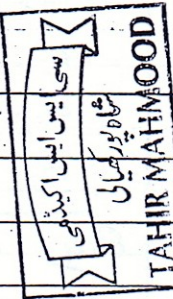 سی ایس ایس اکیڈمی
شاہ پور کہیالی
TAHIR MAHMOOD